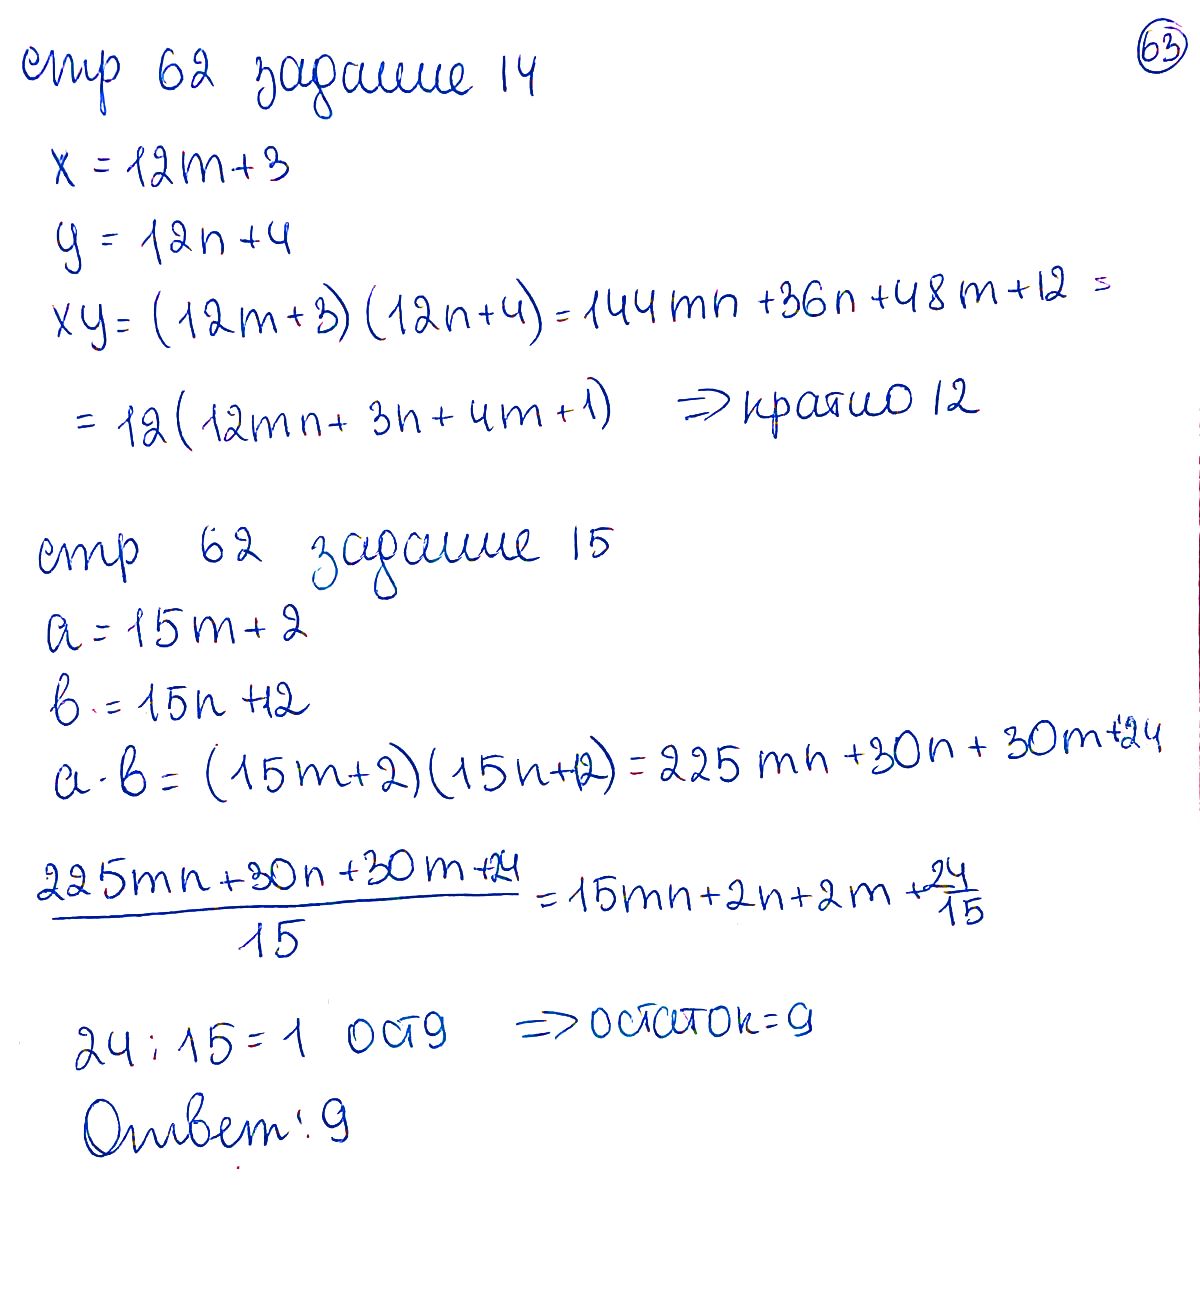 63
стр 62 задание 14
x = 12m + 3
y = 12n + 4
xy = (12m + 3)(12n + 4) = 144mn + 36n + 48m + 12 =
= 12(12mn + 3n + 4m + 1) ⇒ кратно 12
стр 62 задание 15
a = 15m + 2
b = 15n + 12
a · b = (15m + 2)(15n + 12) = 225mn + 30n + 30m + 24
225mn + 30n + 30m + 24 / 15 = 15mn + 2n + 2m + 24/15
24 : 15 = 1 ост 9 ⇒ остаток = 9
Ответ: 9